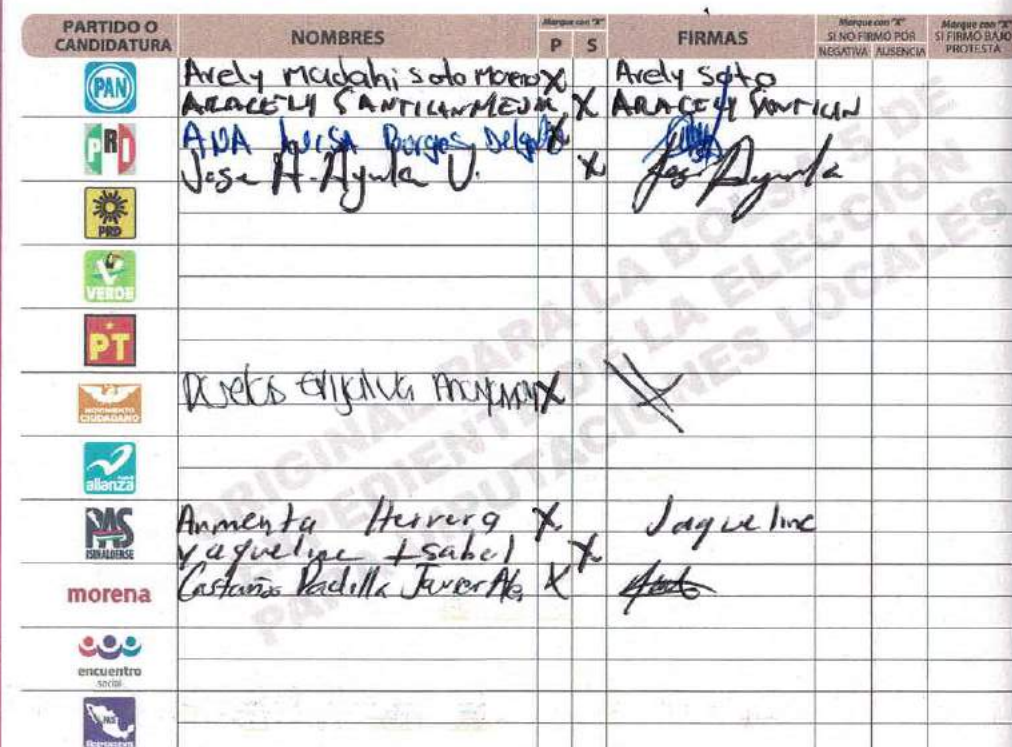 PARTIDO O CANDIDATURA NOMBRES Marque con "X" P S FIRMAS Marque con "X" SI NO FIRMÓ POR NEGATIVA AUSENCIA Marque con "X" SI FIRMÓ BAJO PROTESTA
PAN Arely Madahi Soto Moreno X Arely Soto
ARACELY SANTILLAN MEJIA X ARACELY SANTILLAN
PRI ANA Luisa Borges Delgado X
Jose A. Ayala U. X Jose Ayala
PRD
VERDE
PT
MOVIMIENTO CIUDADANO X
alianza
PAS SINALOENSE Armenta Herrera X Jaqueline
Yaqueline Isabel X
morena Castaños Padilla Javier Ale. X
encuentro social
ORIGINAL PARA LA BOLSA DE
EXPEDIENTE DE LA ELECCIÓN
PARA DIPUTACIONES LOCALES